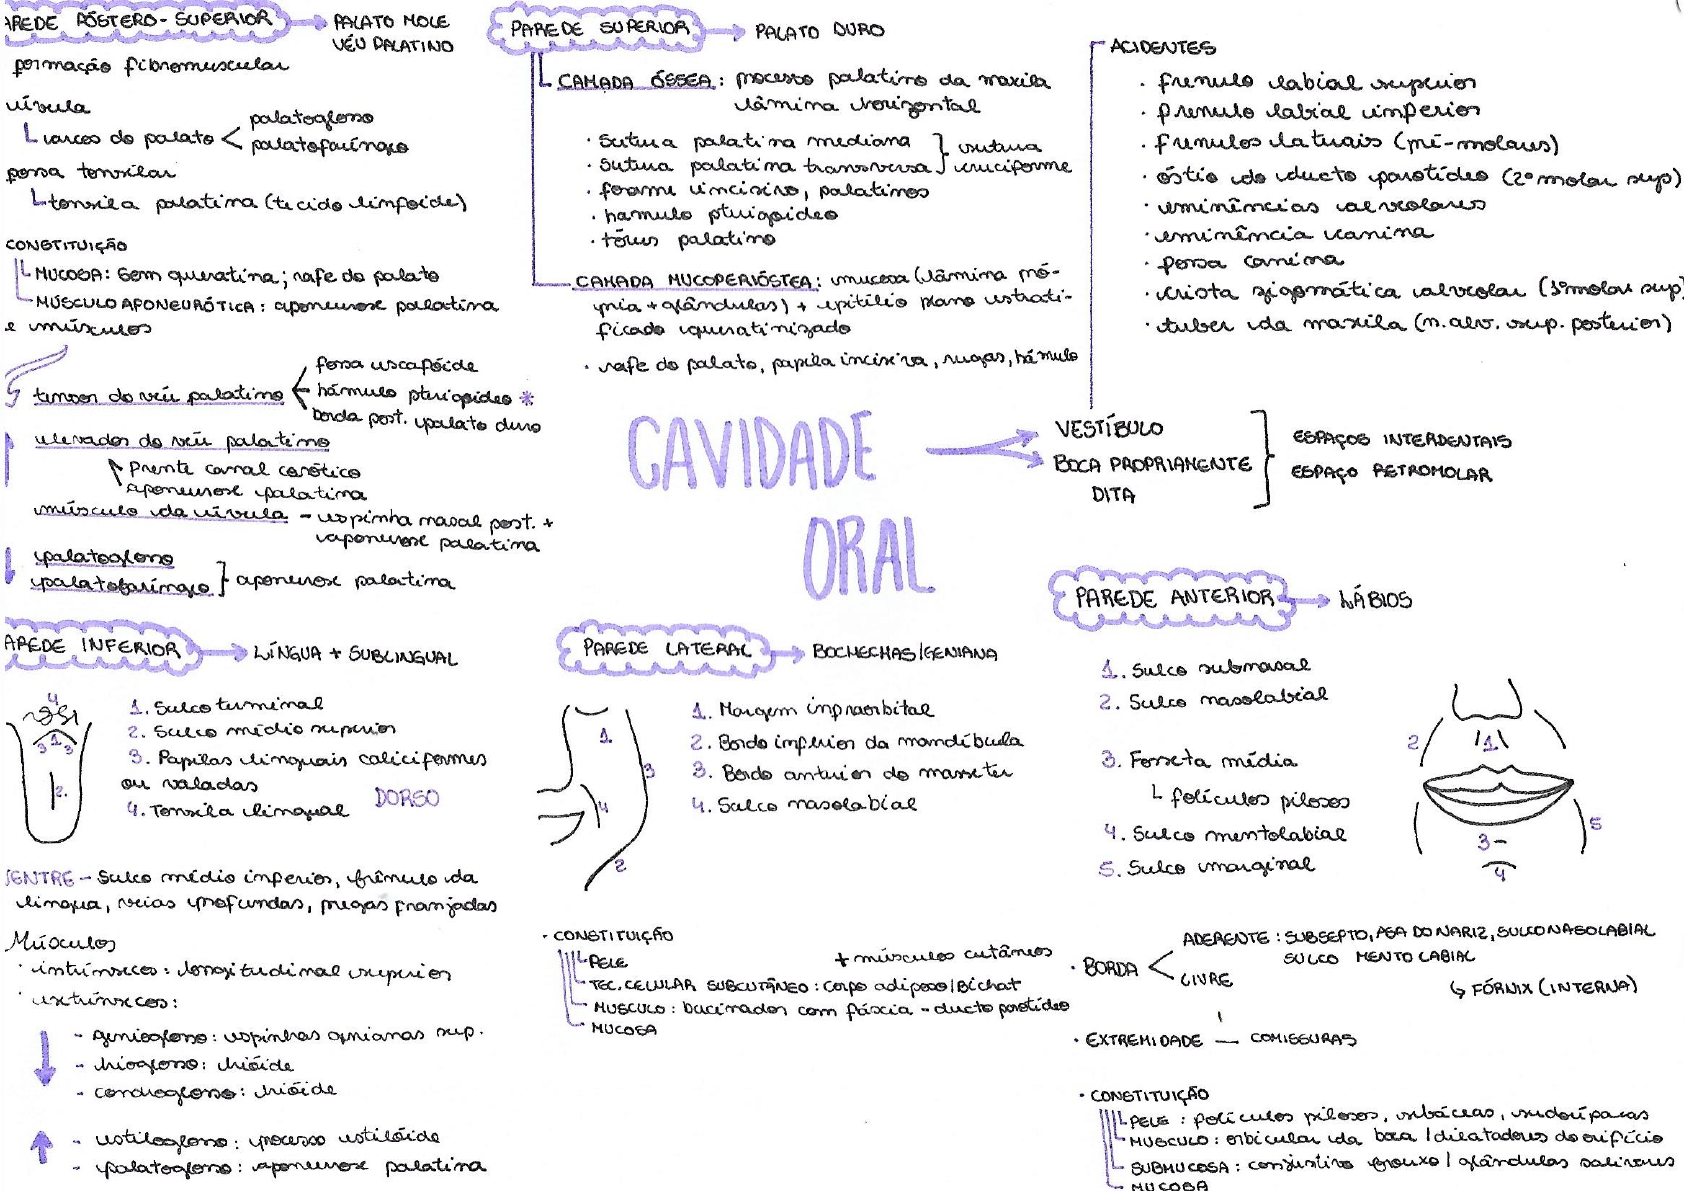 PAREDE PÓSTERO-SUPERIOR → PALATO MOLE
VÉU PALATINO
formação fibromuscular
úvula
arcos do palato < palatoglosso
palatofaríngeo
fossa tonsilar
tonsila palatina (tecido linfoide)
CONSTITUIÇÃO
MUCOSA: sem queratina; rafe do palato
MÚSCULO APONEURÓTICA: aponeurose palatina
e músculos
tensor do véu palatino
fossa escafóide
hámulo pterigoideo *
borda post. palato duro
elevador do véu palatino
frente canal carótico
aponeurose palatina
músculo da úvula - espinha nasal post. +
aponeurose palatina
palatoglosso
palatofaríngeo } aponeurose palatina
PAREDE SUPERIOR → PALATO DURO
CAMADA ÓSSEA: processo palatino da maxila
lâmina horizontal
· Sutura palatina mediana
· Sutura palatina transversa } sutura
cruciforme
· forame incisivo, palatinos
· hamulo pterigoideo
· tórus palatino
CAMADA MUCOPERIÓSTEA: mucosa (lâmina pró-
pria + glândulas) + epitélio plano estrati-
ficado queratinizado
· rafe do palato, papila incisiva, rugas, hámulo
ACIDENTES
· frenulo labial superior
· frenulo labial inferior
· frenulos laterais (pré-molares)
· óstio do ducto parotídeo (2º molar sup)
· eminências alveolares
· eminência canina
· fossa canina
· crista zigomática alveolar (1º molar sup)
· tuber da maxila (n. alv. sup. posterior)
CAVIDADE
ORAL
VESTÍBULO
BOCA PROPRIAMENTE
DITA
ESPAÇOS INTERDENTAIS
ESPAÇO RETROMOLAR
PAREDE INFERIOR → LÍNGUA + SUBLINGUAL
4
3 1 3
2.
1. Sulco terminal
2. Sulco médio superior
3. Papilas linguais caliciformes
ou valadas
4. Tonsila lingual
DORSO
VENTRE - Sulco médio inferior, frênulo da
lingua, veias profundas, pregas franjadas
Músculos
· intrínsecos: longitudinal superior
· extrínsecos:
- genioglosso: espinhas genianas sup.
- hioglosso: hióide
- condroglosso: hióide
- estiloglosso: processo estilóide
- palatoglosso: aponeurose palatina
PAREDE LATERAL → BOCHECHAS/GENIANA
1.
3
4
2
1. Margem infraorbital
2. Bordo inferior da mandíbula
3. Bordo anterior do masseter
4. Sulco nasolabial
· CONSTITUIÇÃO
PELE
+ músculos cutâneos
TEC. CELULAR SUBCUTÂNEO: corpo adiposo/Bichat
MUSCULO: bucinador com fáscia - ducto parotídeo
MUCOSA
PAREDE ANTERIOR → LÁBIOS
1. Sulco subnasal
2. Sulco nasolabial
3. Fosseta média
└ folículos pilosos
4. Sulco mentolabial
5. Sulco marginal
2
1
5
3-
4
· BORDA < ADERENTE: SUBSEPTO, ASA DO NARIZ, SULCO NASOLABIAL
SULCO MENTO LABIAL
LIVRE
↳ FÓRNIX (INTERNA)
· EXTREMIDADE — COMISSURAS
· CONSTITUIÇÃO
PELE: folículos pilosos, sebáceas, sudoríparas
MUSCULO: orbicular da boca / dilatadores do orifício
SUBMUCOSA: conjuntivo frouxo / glândulas salivares
MUCOSA